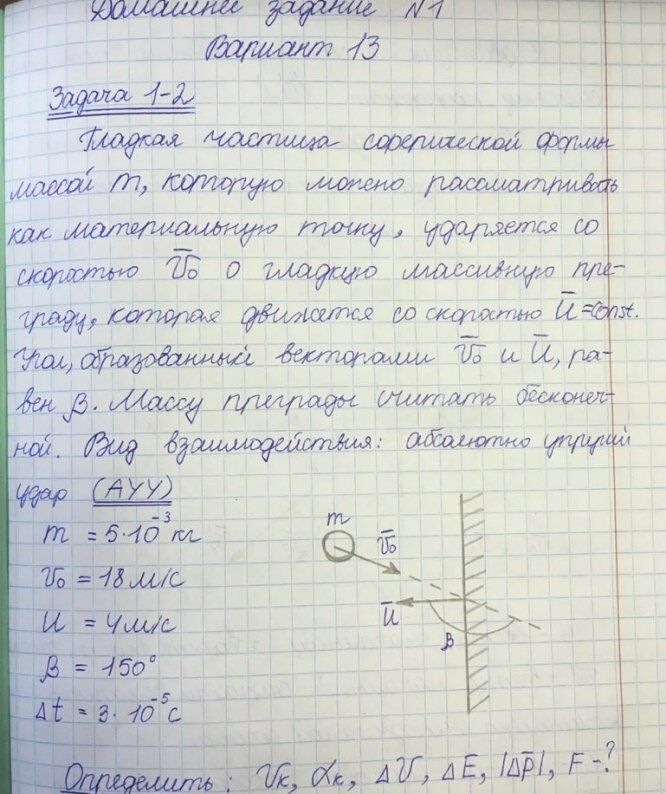 Домашнее задание №1
Вариант 13
Задача 1-2
Гладкая частица сферической формы
массой m, которую можно рассматривать
как материальную точку, ударяется со
скоростью v̅₀ о гладкую массивную пре-
граду, которая движется со скоростью u̅=const.
Угол, образованный векторами v̅₀ и u̅, ра-
вен β. Массу преграды считать бесконеч-
ной. Вид взаимодействия: абсолютно упругий
удар (АУУ)
m = 5·10⁻³ кг
v₀ = 18 м/с
u = 4 м/с
β = 150°
Δt = 3·10⁻⁵ с
m
v̅₀
u̅
β
Определить: vк, αк, Δv, ΔE, |Δp̅|, F-?